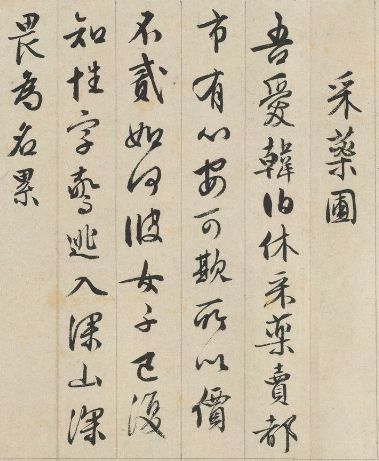 采藥圃
吾愛韓伯休采藥賣都
市有心安可欺所以價
不貳如何彼女子已復
知姓字驚逃入深山深
畏為名累